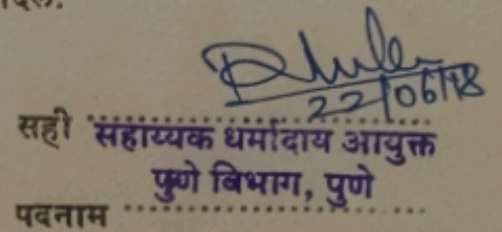 22/06/18
सही सहाय्यक धर्मादाय आयुक्त
पुणे विभाग, पुणे
पदनाम